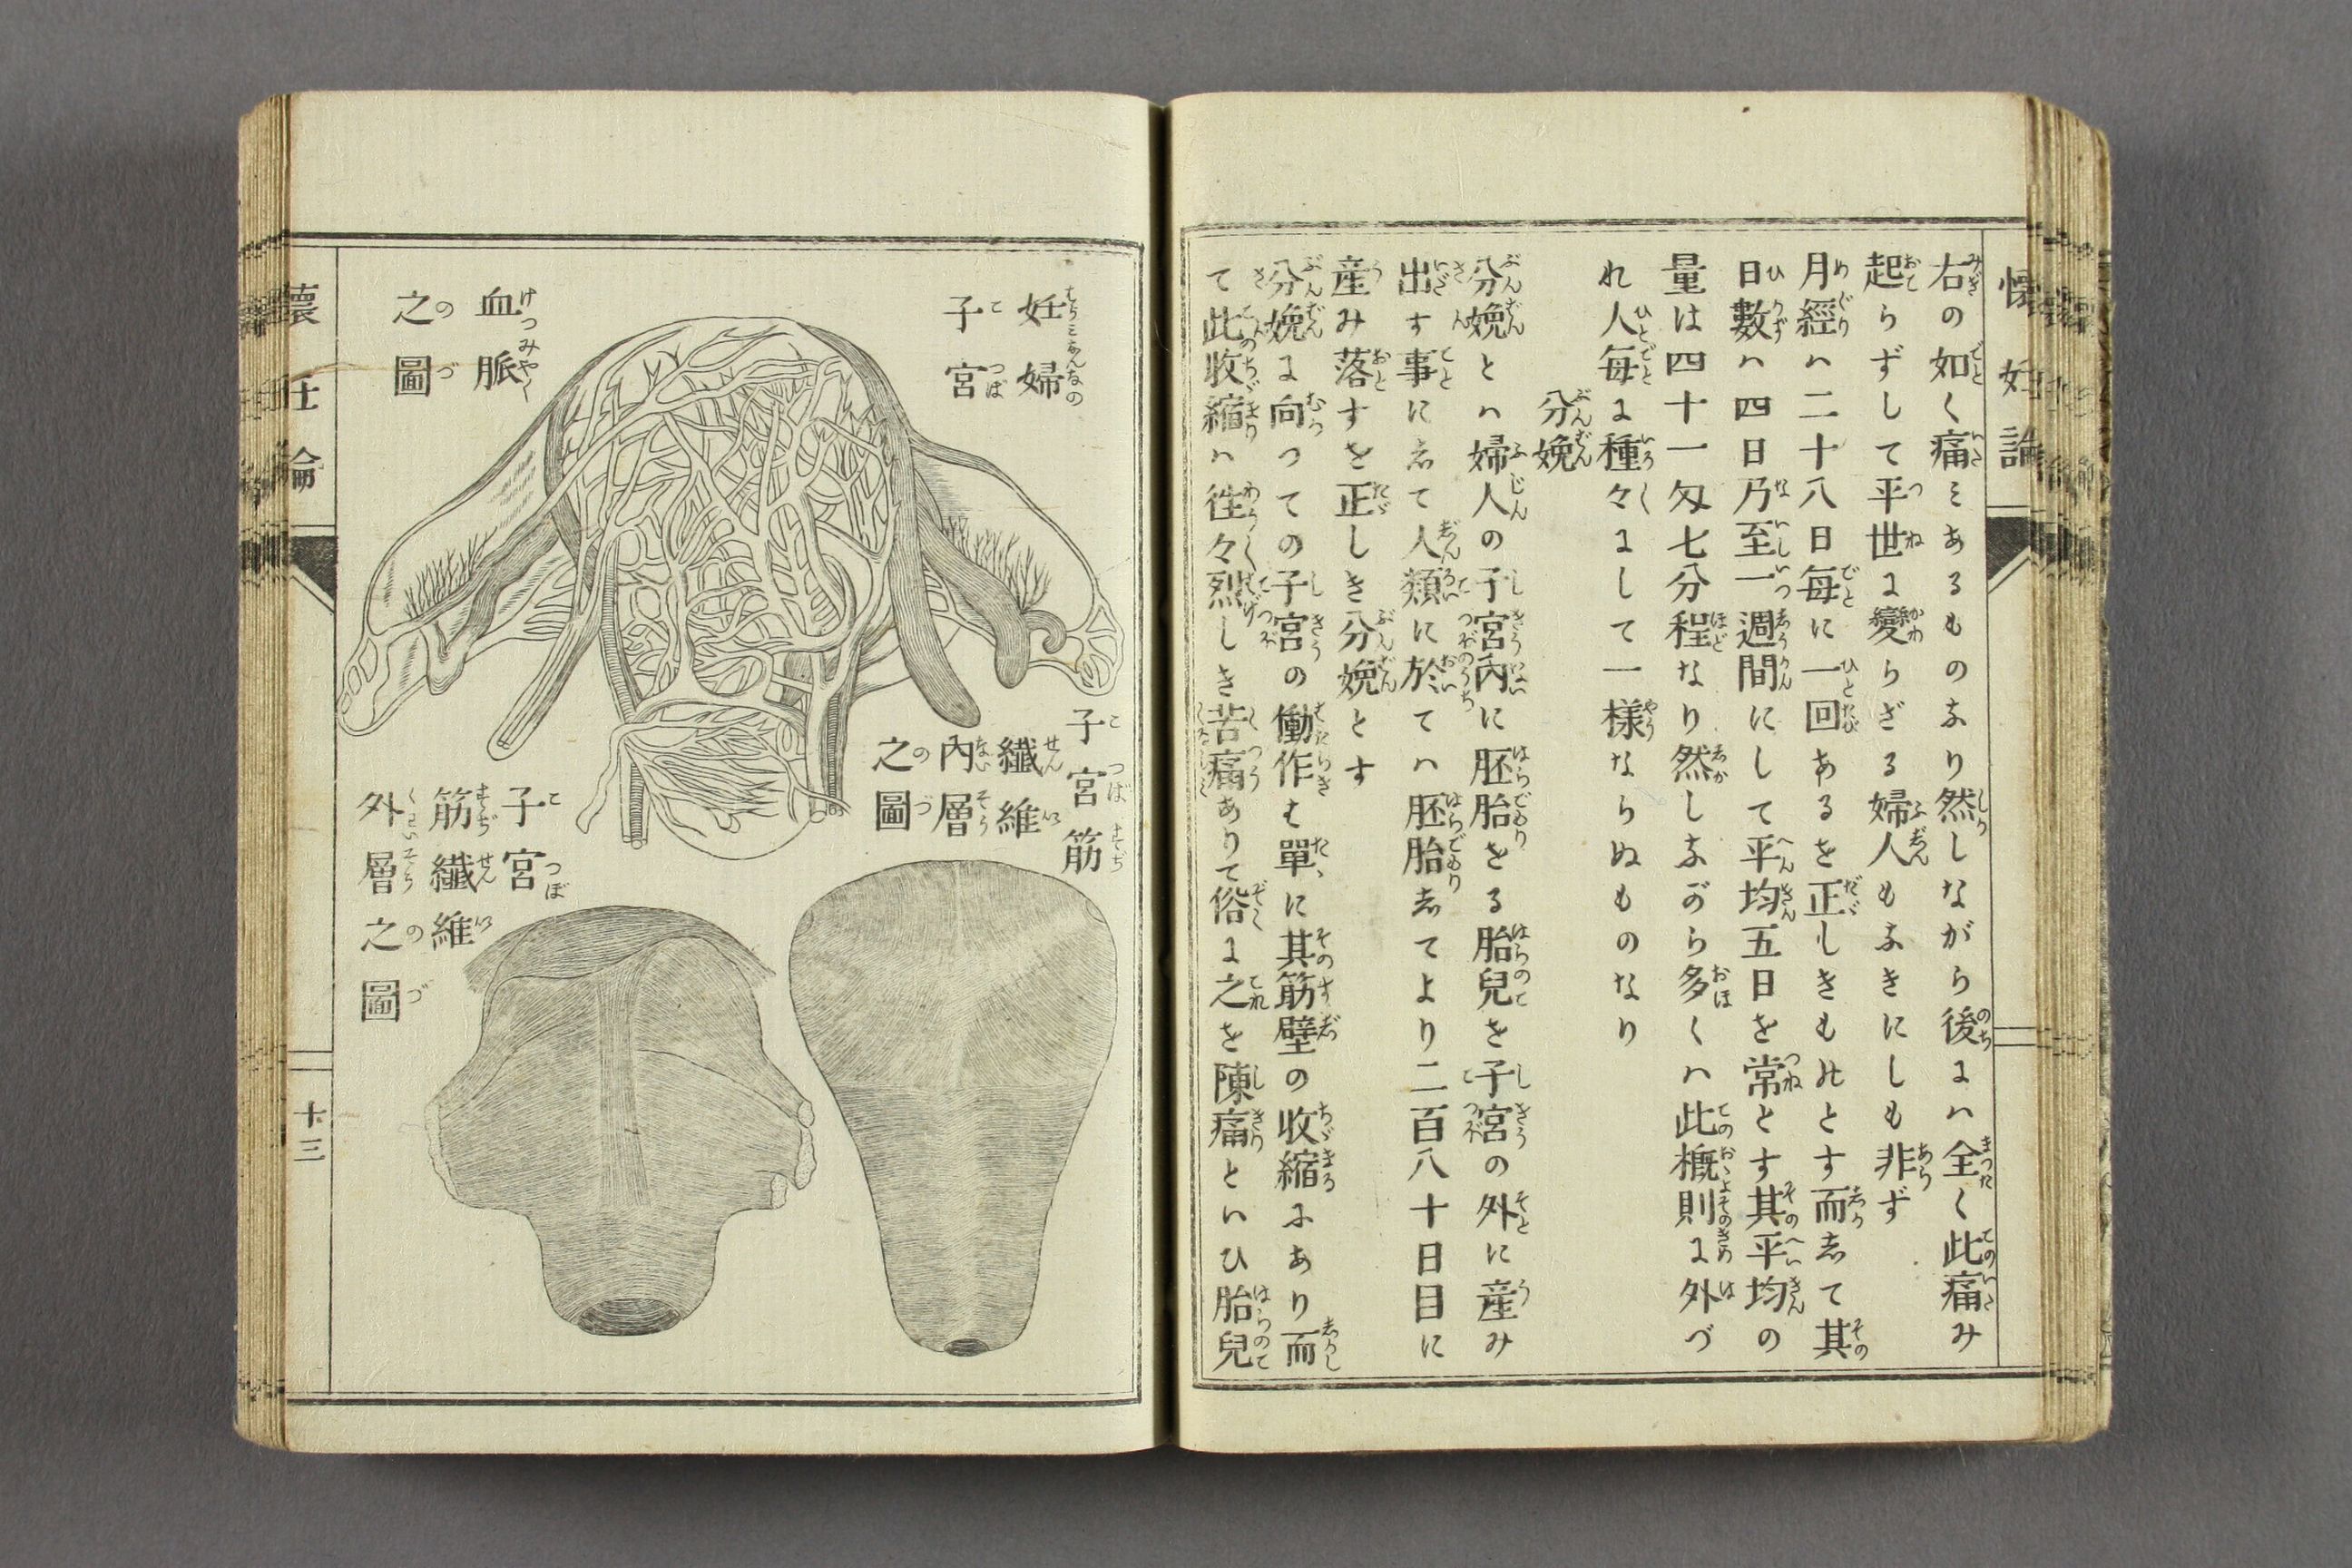 懐妊論
右の如く痛ミあるものなり然しながら後にハ全く此痛み
起らずして平世に變らざる婦人もなきにしも非ず
月經ハ二十八日毎に一回あるを正しきものとす而して其
日數ハ四日乃至一週間にして平均五日を常とす其平均の
量は四十一匁七分程なり然しながら多くハ此概則に外づ
れ人毎に種々にして一樣ならぬものなり
分娩
分娩とハ婦人の子宮內に胚胎せる胎兒を子宮の外に産み
出す事にして人類に於てハ胚胎してより二百八十日目に
産み落すを正しき分娩とす
分娩に向つての子宮の働作も單に其筋壁の收縮にあり而
て此收縮ハ徃々烈しき苦痛ありて俗に之を陳痛といひ胎兒
妊婦
子宮
血脈
之圖
子宮筋
纖維
內層
之圖
子宮
筋纖維
外層之圖
懐妊論
十三